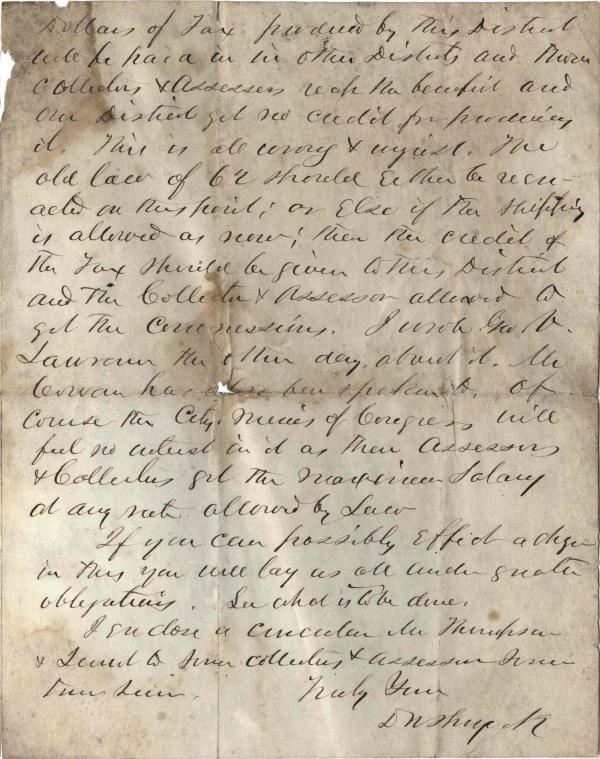 Dollars of Tax produced by this District
will be paid in in other Districts and their
Collectors & Assessors reap the benefit and
our District get no credit for producing
it. This is all wrong & unjust. The
old law of 62 should Either be reen-
acted on this point; or Else if the shipping
is allowed as now; then the credit of
the Tax should be given to this District
and the Collector & Assessor allowed to
get the commissions. I wrote Geo V.
Lawrence the other day, about it. Mr
Cowan has also been spoken to. Of
course the City Mem's of Congress will
feel no interest in it as their Assessors
& Collectors get the maximum Salary
at any rate allowed by Law
If you can possibly Effect a change
in this you will lay us all under greater
obligations. See what is to be done.
I enclose a circular Mr Thompson
& I sent to some collectors & assessors some
time since.
Truly Yours
D W Shryock